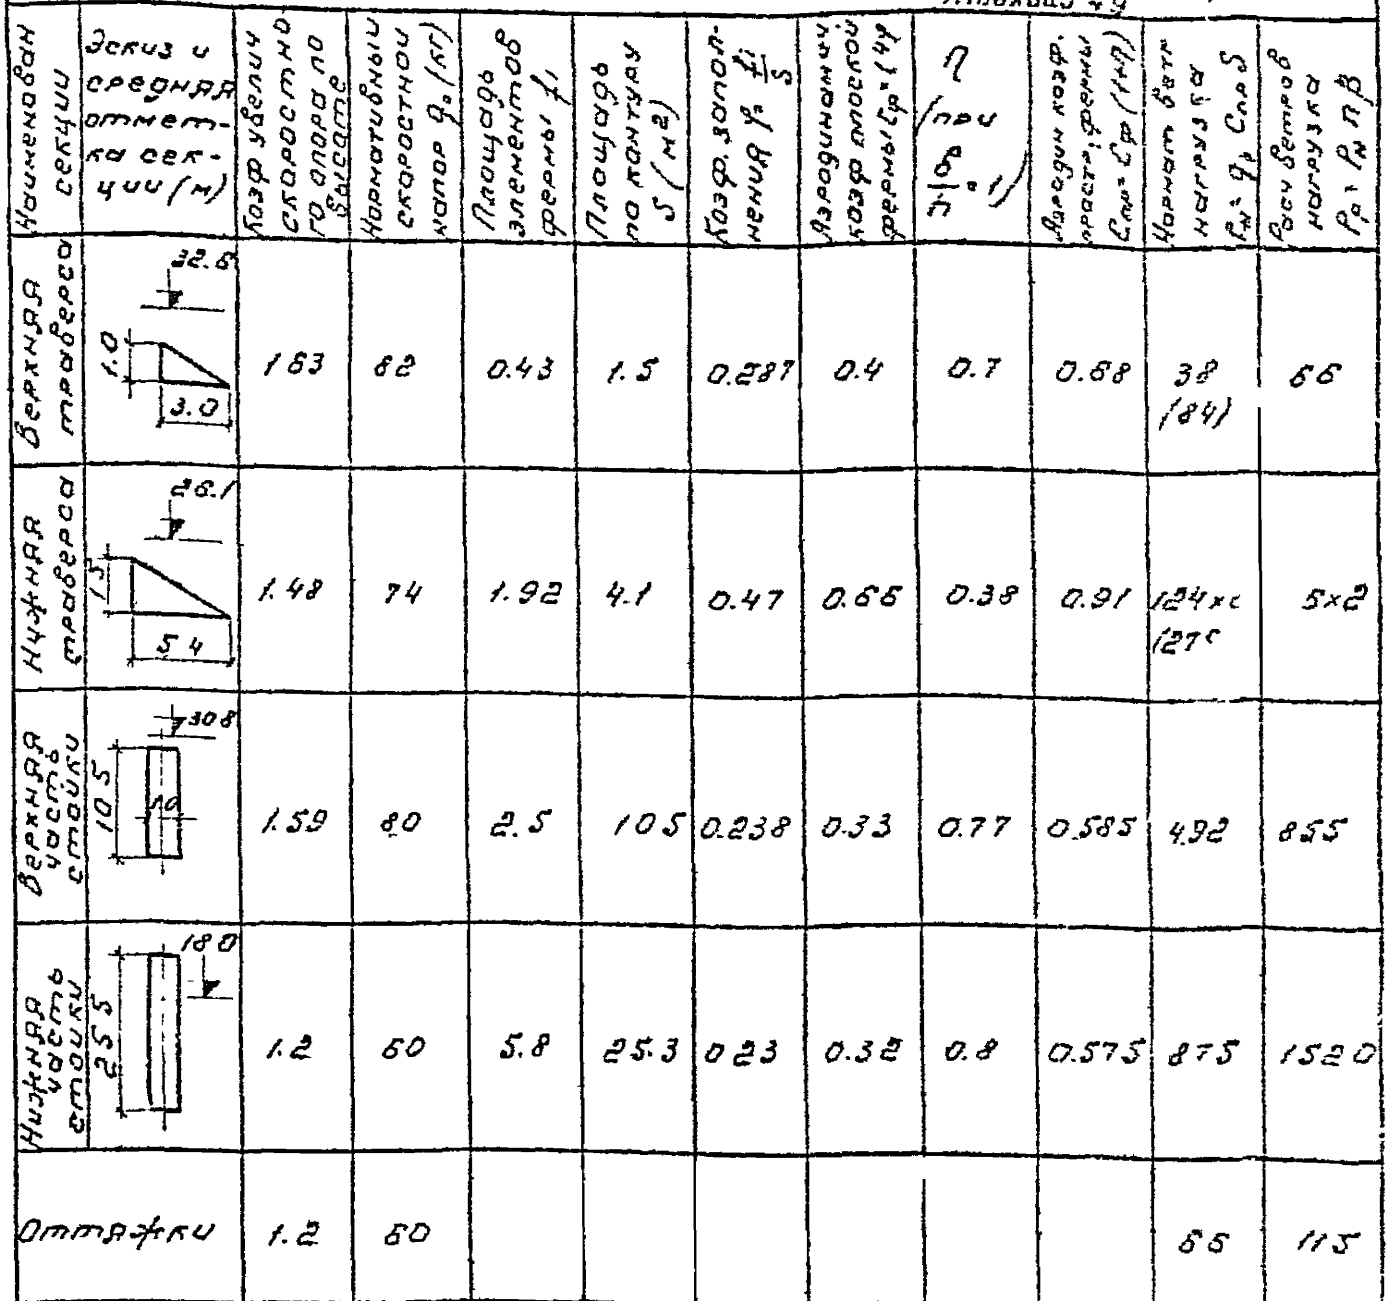 Наименован
секции
Эскиз и
средняя
отмет-
ка сек-
ции (м)
Коэф увелич
скоростно
го опора по
высоте
Нормативный
скоростной
напор q₀ (кг)
Площадь
элементов
фермы f₁
Площадь
по контуру
S (м2)
Коэф. запол-
нения φ = fi/S
Аэродинамич
коэф плоской
фермы Cφ = 1.4φ
η
(при
= 1)
коэф.
простр. фермы
Cпр = Cφ (1+η)
Нормат ветр
нагрузка
Pн = q₀ Cпр S
Расч ветров
нагрузка
Pр = Pн n β
Верхняя
траверса
32.6
1.0
3.0
1 63
82
0.43
1.5
0.287
0.4
0.7
0.68
38
(84)
66
Нижняя
траверса
26.1
1.5
5 4
1.48
74
1.92
4.1
0.47
0.66
0.38
0.91
5×2
Верхняя
часть
стойки
30 8
10 5
1.0
1.59
80
2.5
10 5
0.238
0.33
0.77
0.585
492
855
Нижняя
часть
стойки
18 0
25 5
1.2
60
5.8
25.3
0 23
0.32
0.8
0.575
875
1520
Оттяжки
1.2
60
66
115